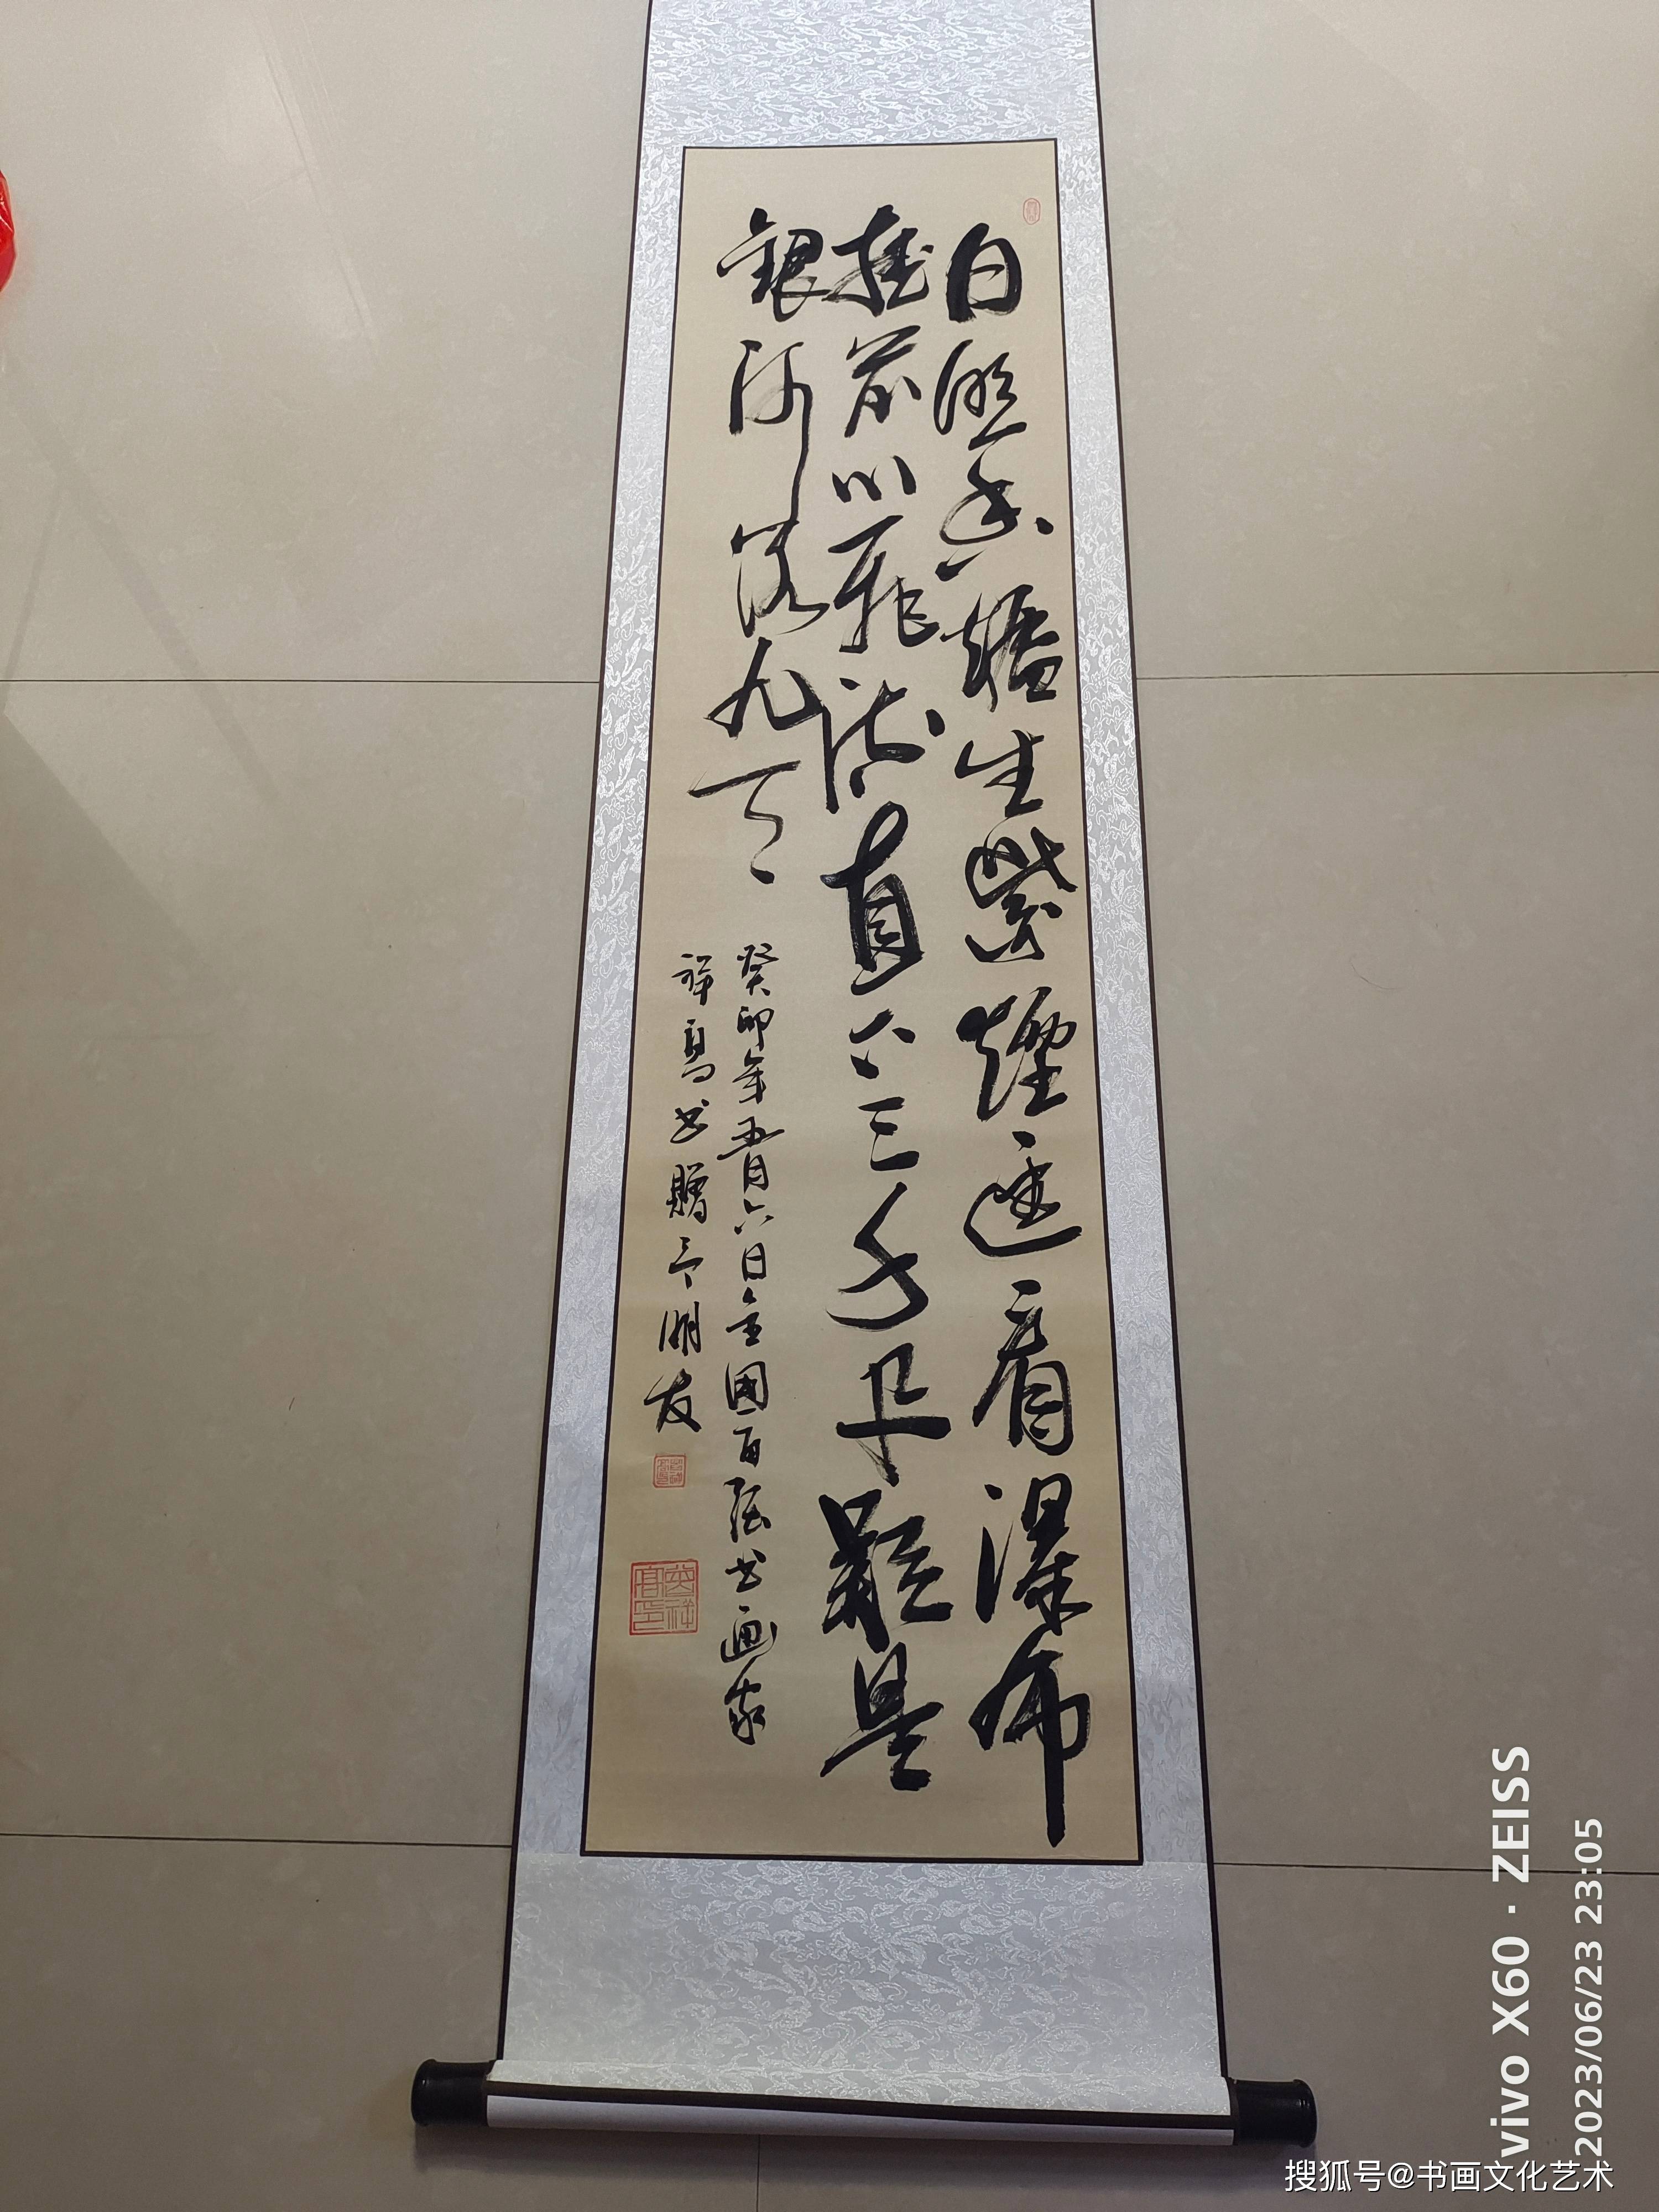 日照香爐生紫煙遥看瀑布
挂前川飛流直下三千尺疑是
銀河落九天
癸卯年五月六日全國百强书画家
祥高书贈朋友
曾祥高印
vivo X60 · ZEISS
2023/06/23 23:05
搜狐号@书画文化艺术